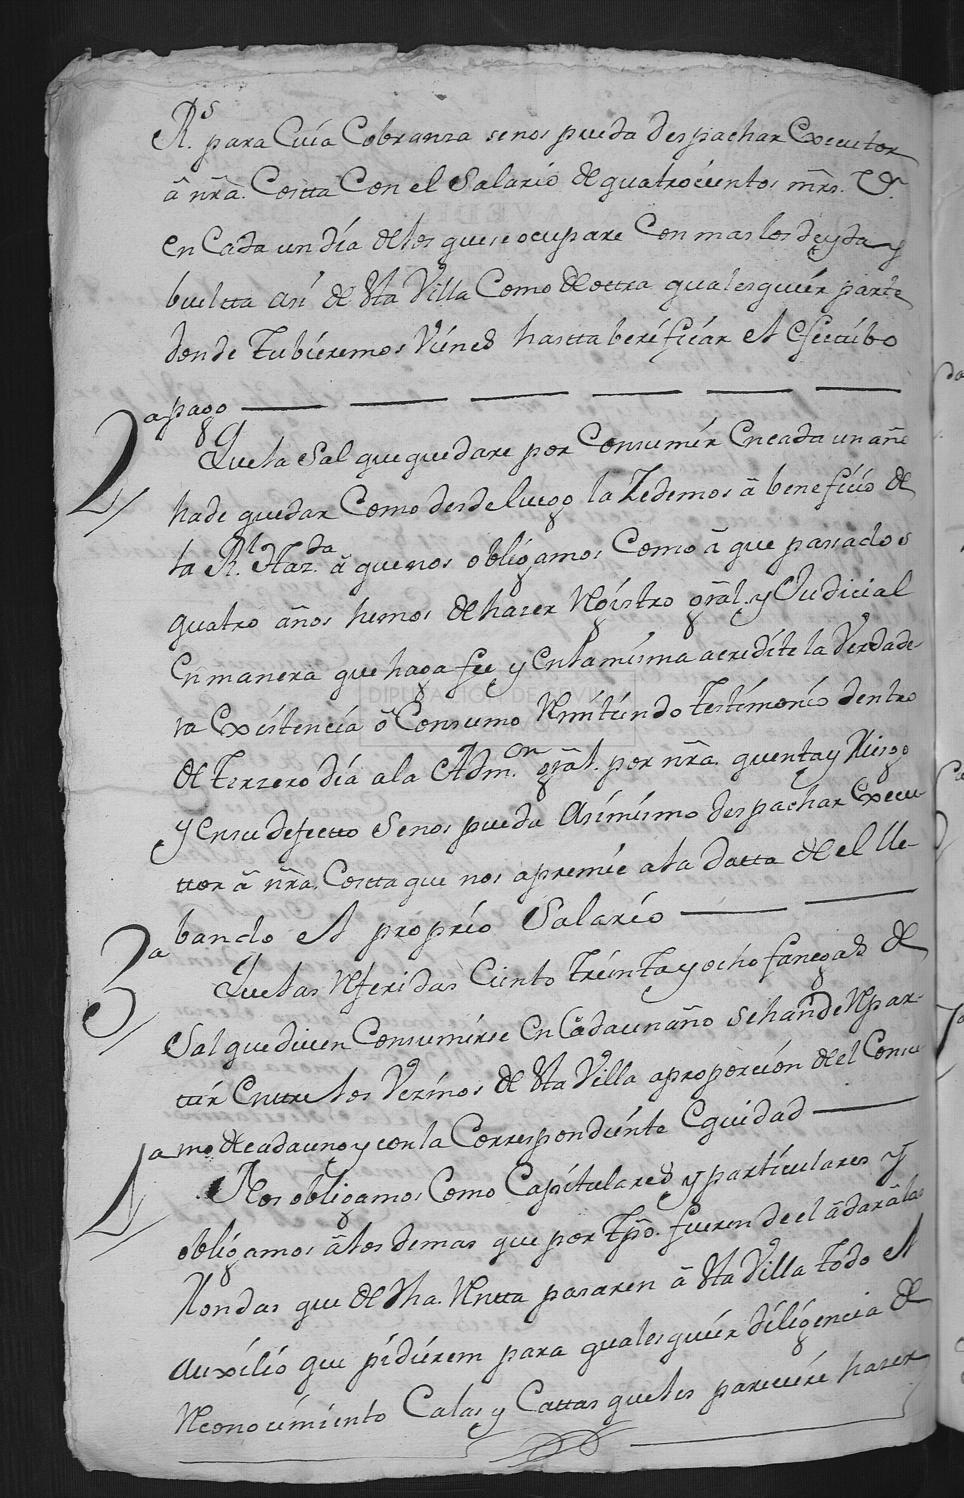 Rs. para Cuia Cobransa se nos pueda despachar Executor
â nrâ. Costta Con el Salario de quatrocientos mrs. Vn.
en Cada un dia de los que se ocupare Con mas los de yda y
bueltta asi de stta Villa Como de ottra qualesquier parte
donde Tubieremos Vienes hastta berificiar el efectibo
pago
2a Que la Sal que quedare por Consumir en cada un año
ha de quedar Como desde luego la Zedemos â beneficio de
la Rl. Hazda. â que nos obligamos Como â que pasados
quatro años hemos de haser Rejistro gràl. y Judicial
en manera que haga fee y en la misma acredite la Verdade
ra Existencia ô Consumo Remitiendo Testimonio dentro
de Terzero dia a la Admon. gràl. por nrâ. quenta y Riesgo
y en su defectto Se nos pueda Asimismo despachar Execu
ttor â nrâ. Costta que nos apremie a la datta de el lle-
bando el proprio Salario
3a Que las Referidas Ciento Treinta y ocho fanegas de
Sal que diven Consumirse en Cada un año Se han de Repar-
ttir enttre los Vezinos de stta Villa a proporcion de el Consu
mo de cada uno y con la Correspondiente Equidad
4a Nos obligamos Como Capitulares y particulares y
obligamos â los demas que por Tpô. fueren de el â dar â las
Rondas que de dha. Rentta pasaren â stta Villa todo el
Auxilio que pidierem para qualesquier diligencia de
Reconocimiento Calas y Cattas que les pareciere haser
DIPUTACIÓN DE